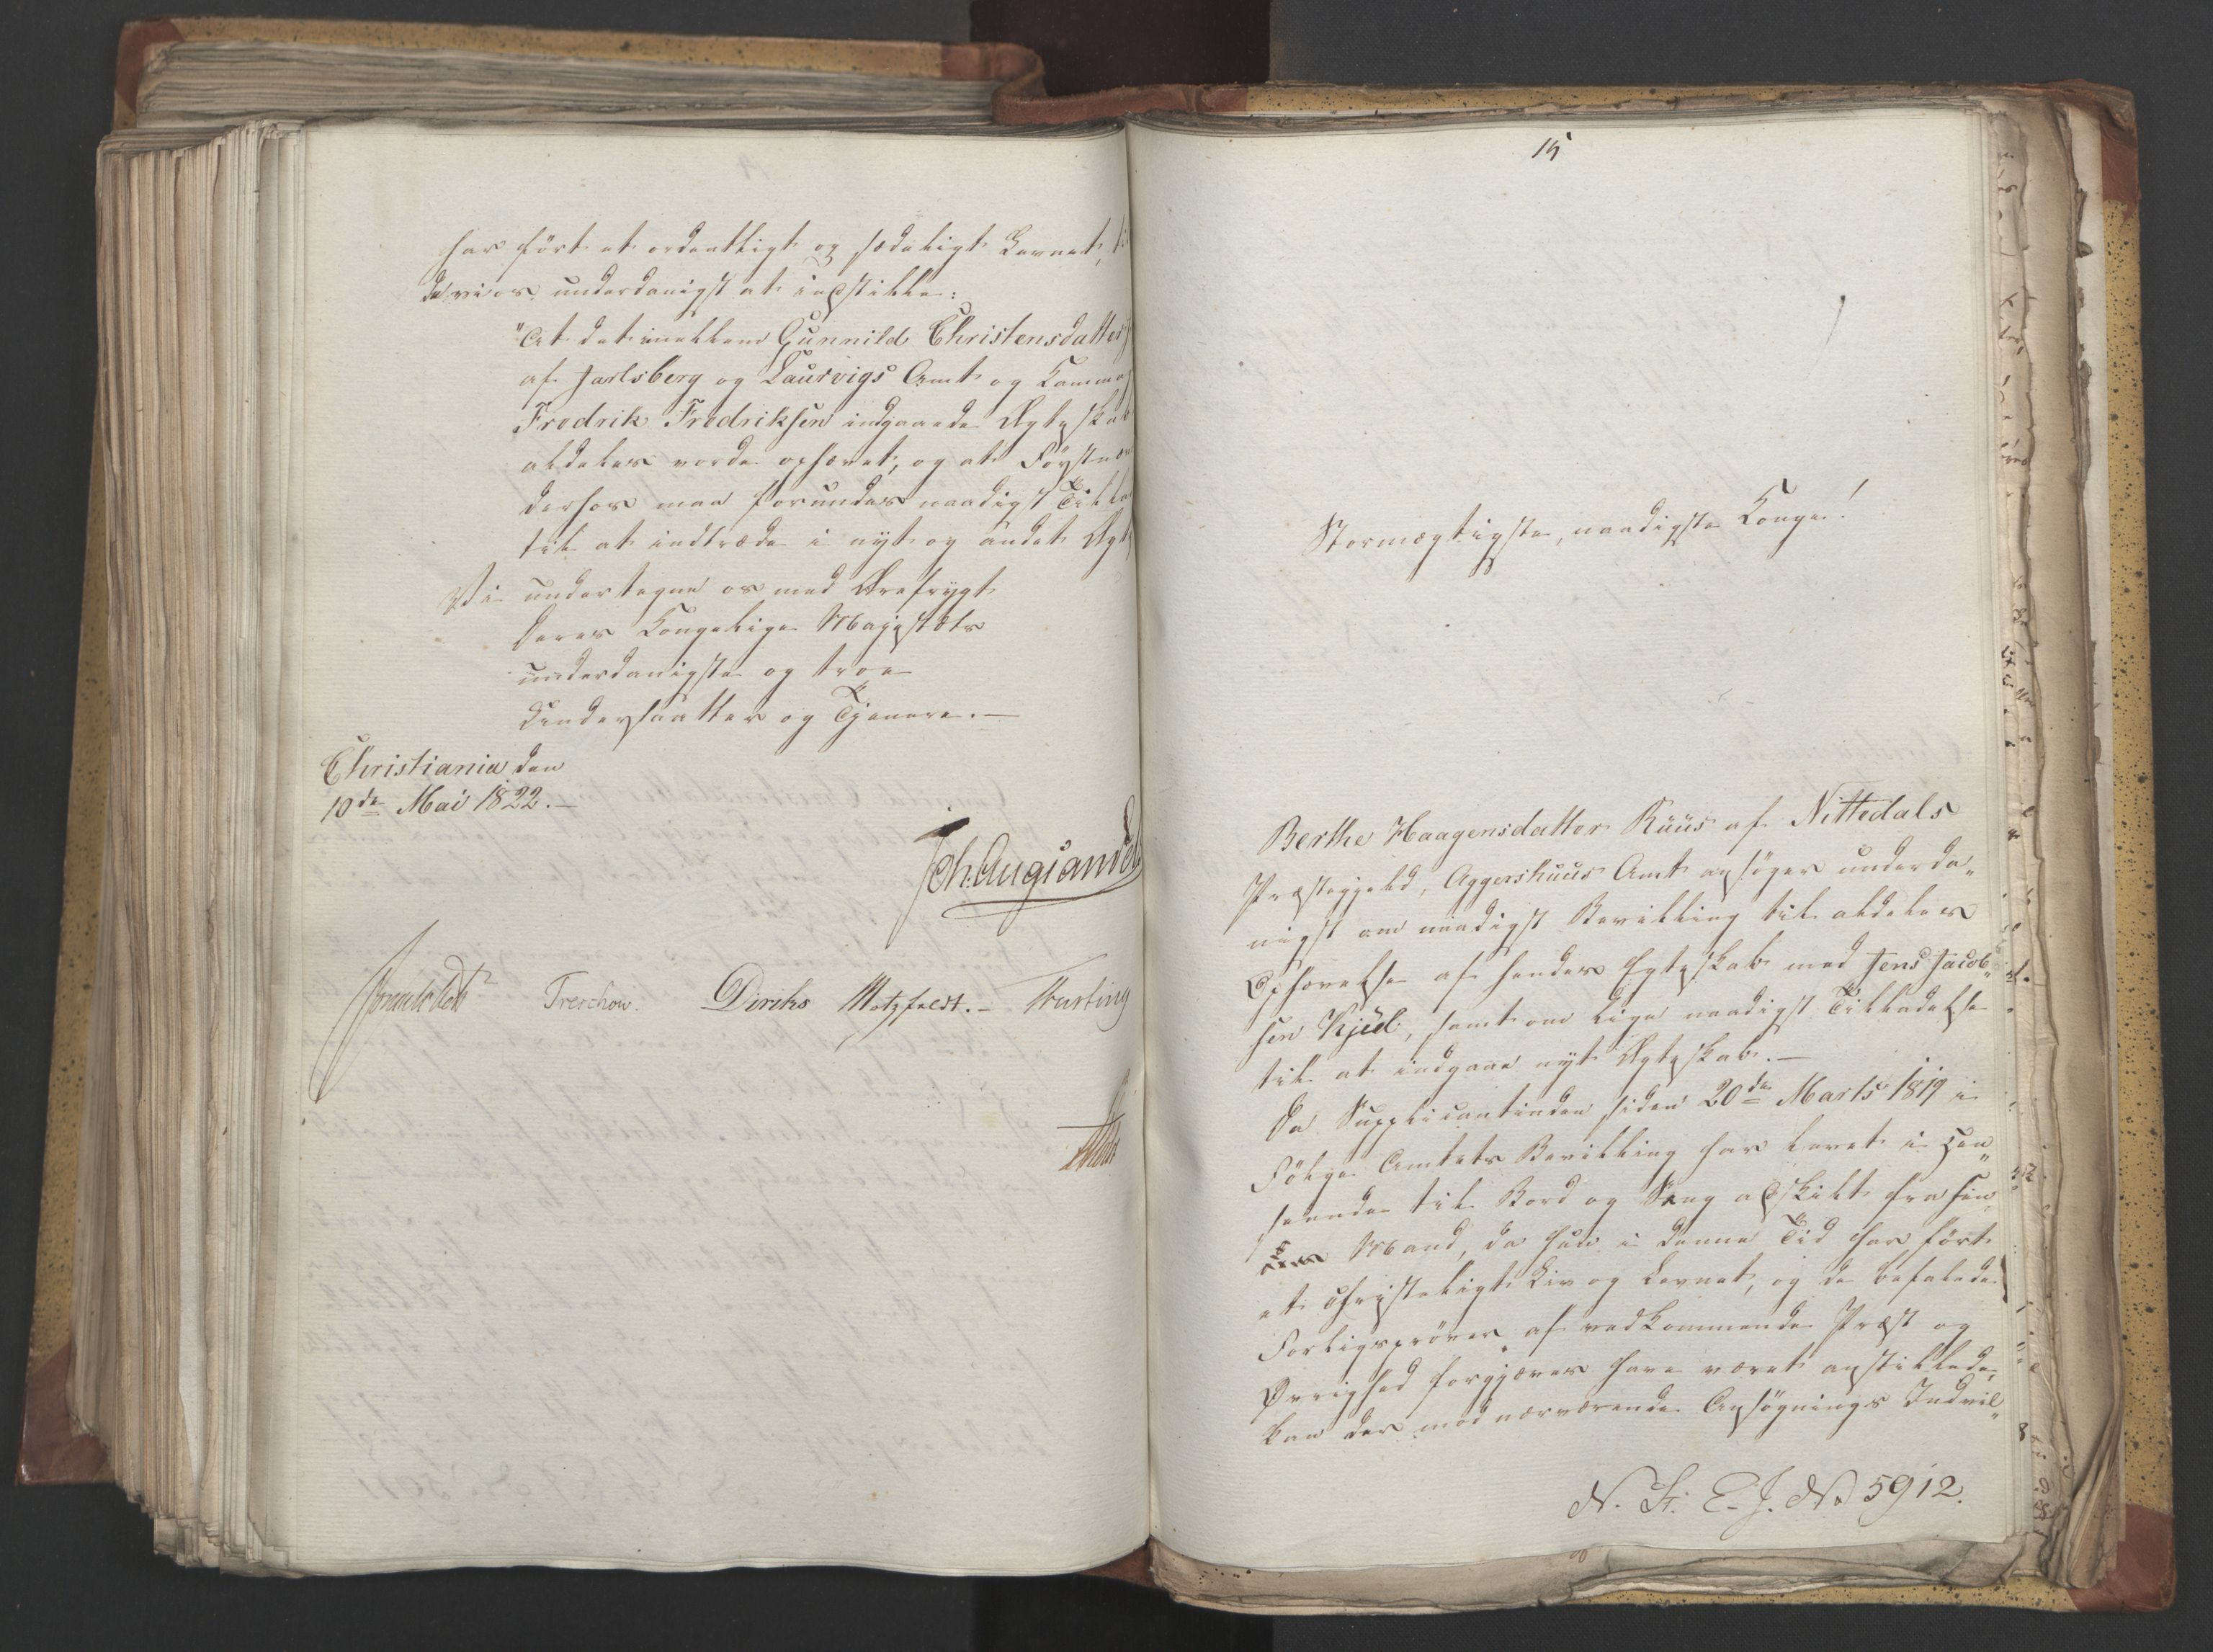 har ført et ordentligt og sædeligt Levnet,
da vi os underdanigst at indstille:
"At det imellem Gunnild Christensdatter
af Jarlsberg og Laurvigs Amt og
Fredrik Fredriksen indgaaede Ægteskab
aldeles vorde ophævet, og at Førstnæv
derhos maa forundes naadigst Tilla
til at indtræde i nyt og andet Ægt
Vi undertegne os med Ærefrygt
Deres Kongelige Majestæts
underdanigste og troe
Undersaatter og Tjenere.—
Christiania den
10de Mai 1822.—
Joh. Aug. Sandels
Sommerfeldt Treschow. Diriks Motzfeldt.— Fasting
15
Stormægtigste, naadigste Konge!
Berthe Haagensdatter Ruus af Nittedals
Præstegjeld, Aggershuus Amt ansøger underda„
nigst om naadigst Bevilling til aldeles
Ophævelse af hendes Egteskab med Jens Jacob„
sen Kjul, samt om lige naadigst Tilladelse
til at indgaae nyt Ægteskab.—
Da Supplicantinden siden 20de Marts 1819 i
Følge Amtets Bevilling har levet i Hen„
seende til Bord og Seng adskilt fra sin
Mand, da hun i denne Tid har ført
et christeligt Liv og Levnet, og de befalede
Forligsprøver af vedkommende Præst og
Øvrighed forgjæves have været anstillede,
kan der mod nærværende Ansøgnings Indvil„
N. St. E. J. No 5912.